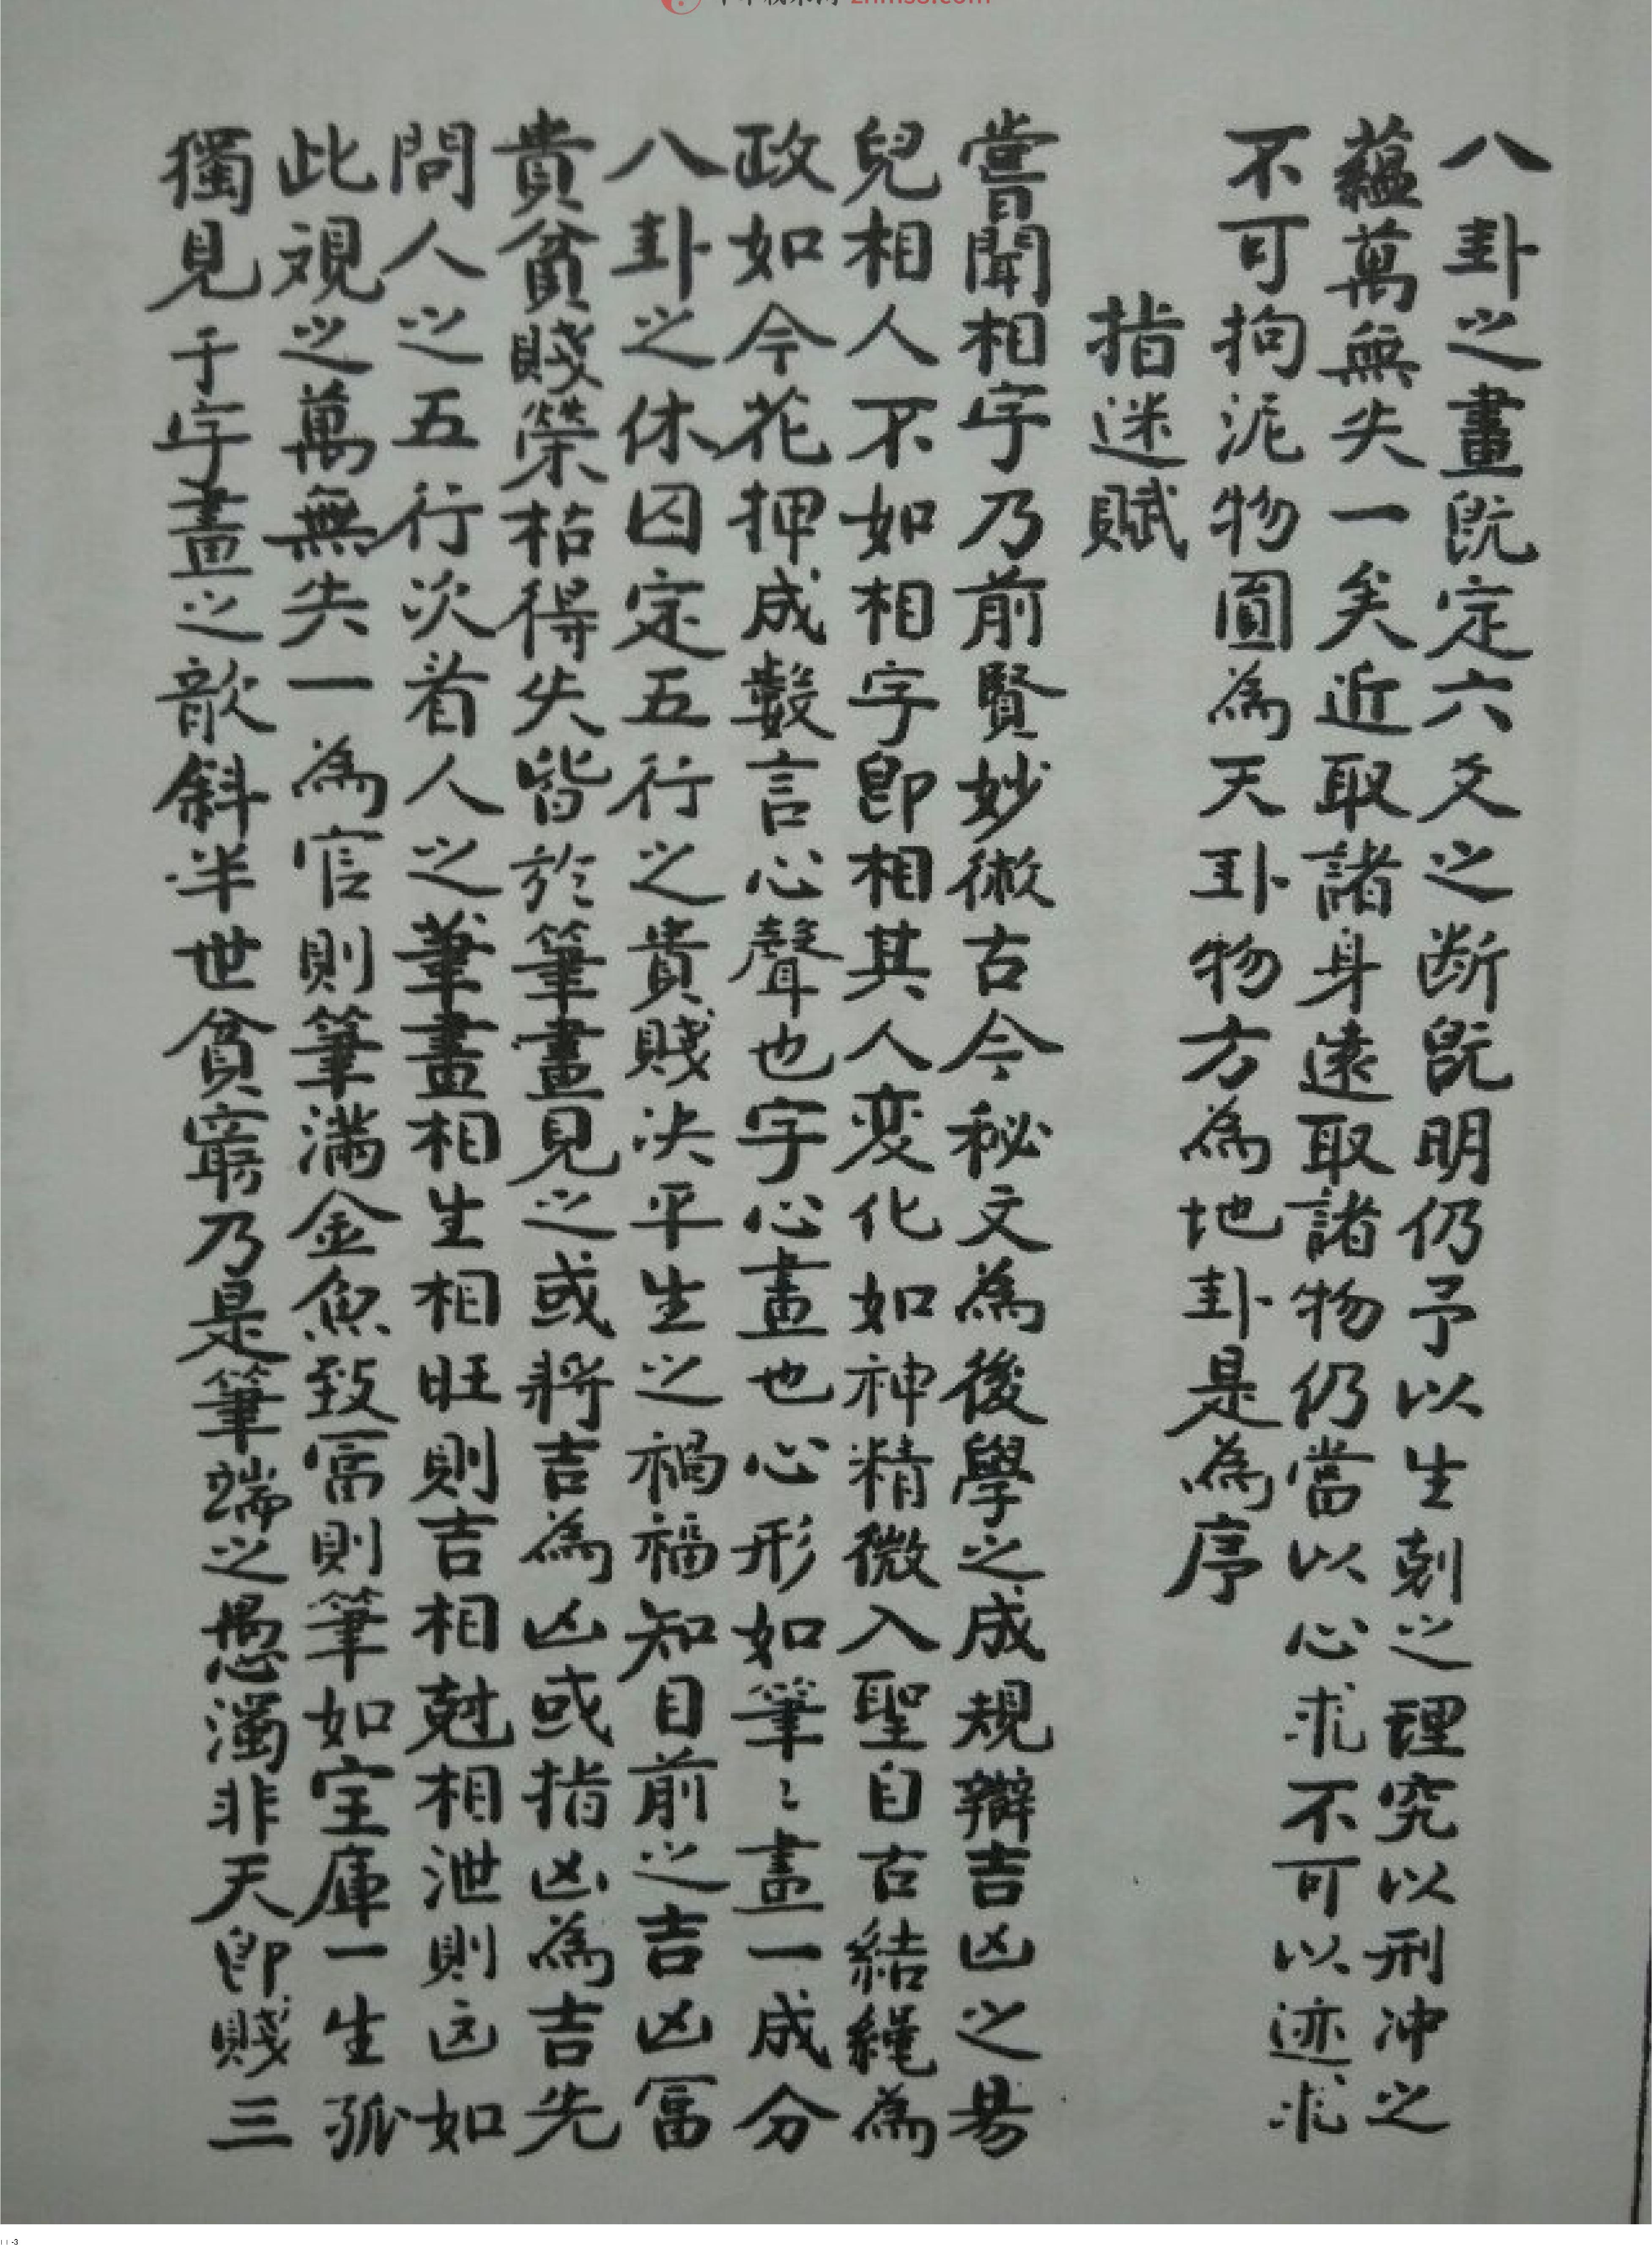 八卦之畫既定六爻之断既明仍予以生剋之理究以刑冲之
蘊萬無失一矣近取諸身遠取諸物仍當以心求不可以迹求
不可拘泥物圓為天卦物方為地卦是為序
指迷賦
嘗聞相字乃前賢妙術古今秘文為後學之成規辯吉凶之易
兒相人不如相字即相其人変化如神精微入聖自古結繩為
政如今花押成數言心聲也字心畫也心形如筆〻畫一成分
八卦之休囚定五行之貴賤决平生之禍福知目前之吉凶冨
貴貧賤榮枯得失皆於筆畫見之或將吉為凶或指凶為吉先
問人之五行次看人之筆畫相生相旺則吉相尅相泄則凶如
此視之萬無失一為官則筆滿金魚致冨則筆如宝庫一生孤
獨見于字畫之歆斜半世貧窮乃是筆端之愚濁非天即賤三
zhms8.com
-3